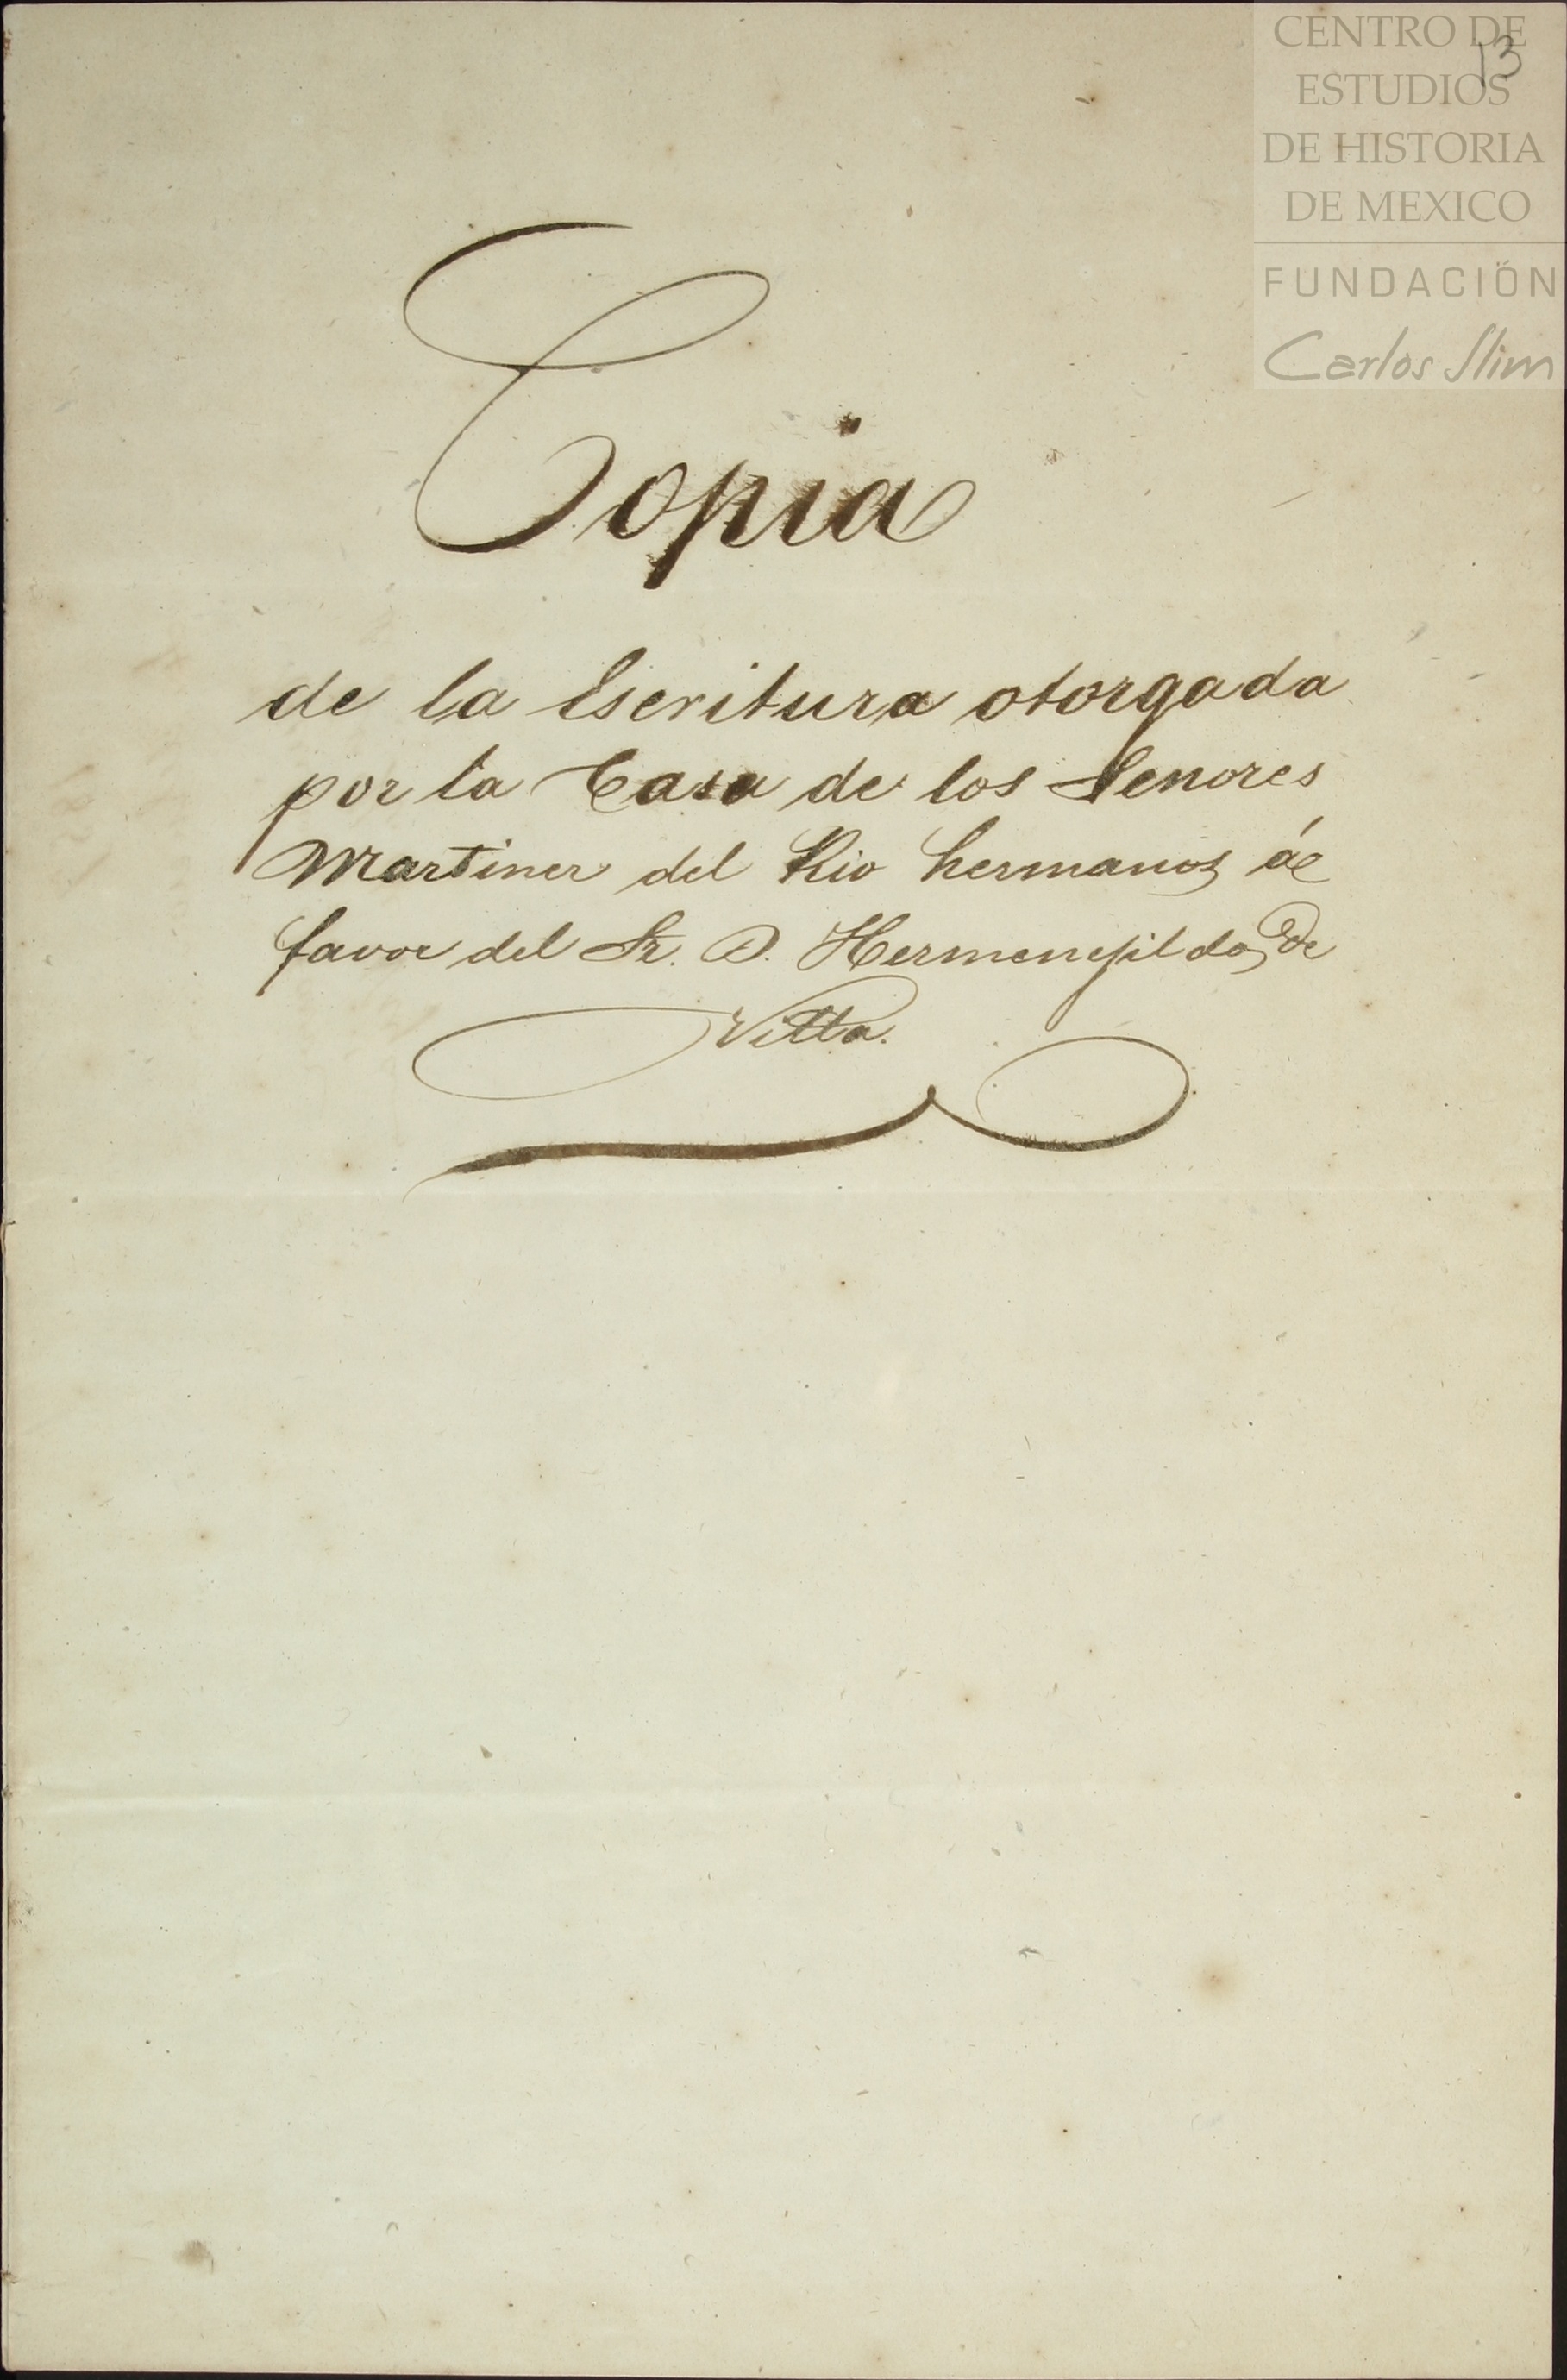 CENTRO DE
ESTUDIOS
DE HISTORIA
DE MEXICO
FUNDACIÓN
Carlos Slim
13
Copia
de la Escritura otorgada
por la Casa de los Senores
Martinez del Rio hermanos á
favor del Sr. D. Hermenegildo de
Villa.